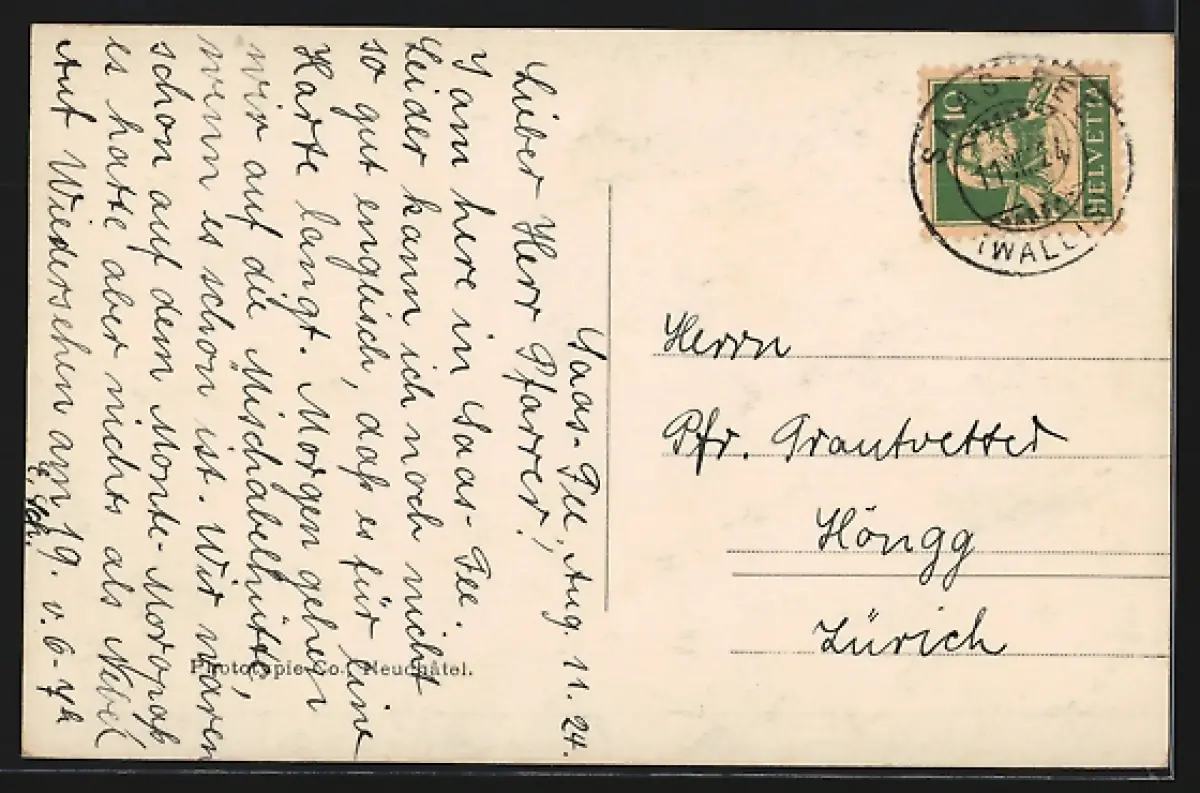 Saas-Fee, Aug. 11. 24.
Lieber Herr Pfarrer!
I am here in Saas-Fee.
Leider kann ich noch nicht
so gut englisch, daß es für eine
Karte langt. Morgen gehen
wir auf die Mischabelhütte,
wenn es schön ist. Wir waren
schon auf dem Monte-Moropaß
es hatte aber nichts als Nebel
Auf Wiedersehen am 19. v. 6-7h
Photo Co., Neuchâtel.
SAAS-
11.VIII.24
(WALLI
10
HELVETIA
Herrn
Pfr.
Höngg
Zürich